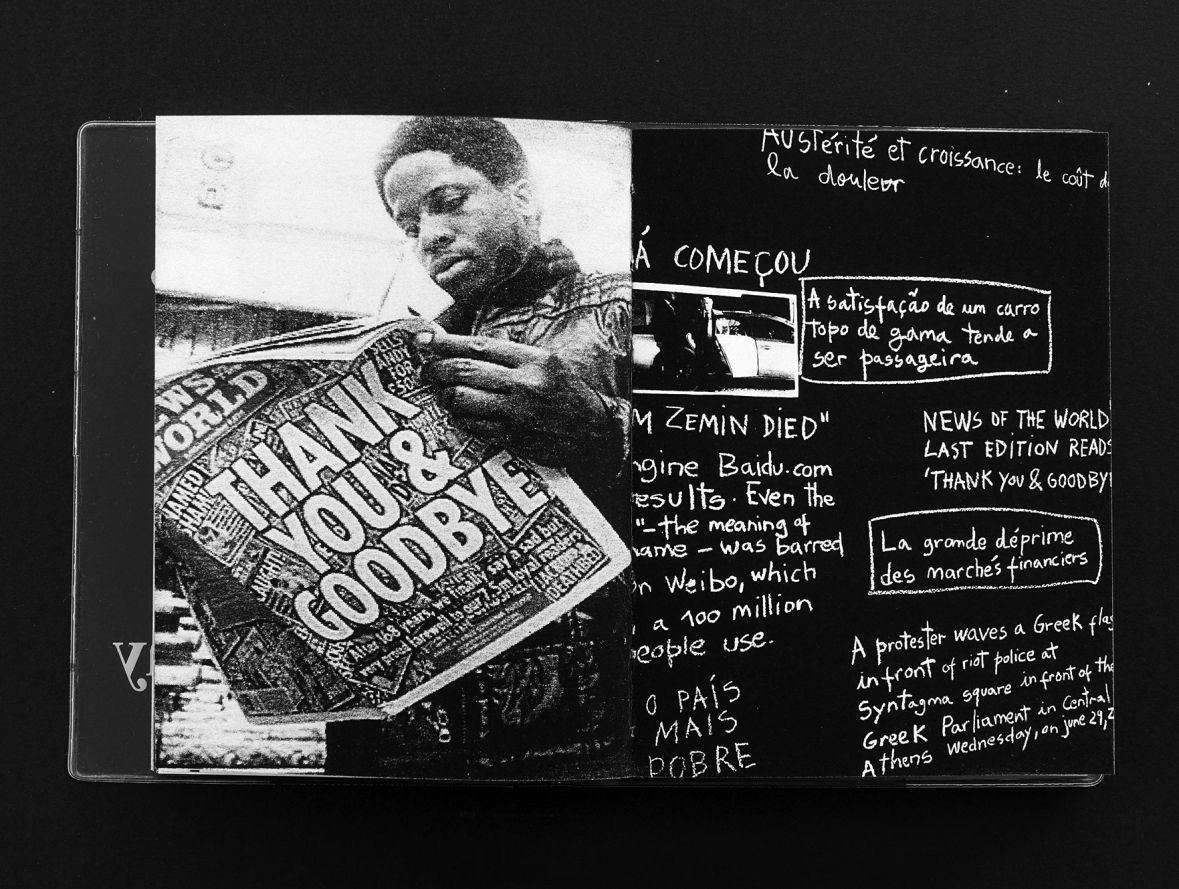 EWS
WORLD
THANK
YOU &
GOODBYE
After 168 years, we finally say a sad but
very proud farewell to our 7.5m loyal readers
Austérité et croissance: le coût d
la douleur
Á COMEÇOU
A satisfação de um carro
topo de gama tende a
ser passageira
M ZEMIN DIED"
NEWS OF THE WORLD
LAST EDITION READS
'THANK YOU & GOODBY
ngine Baidu.com
esults. Even the
"–the meaning of
ame – was barred
n Weibo, which
a 100 million
eople use.
La grande déprime
des marchés financiers
O PAÍS
MAIS
POBRE
A protester waves a Greek flag
in front of riot police at
Syntagma square in front of the
Greek Parliament in Central
Athens Wednesday, on june 29, 2